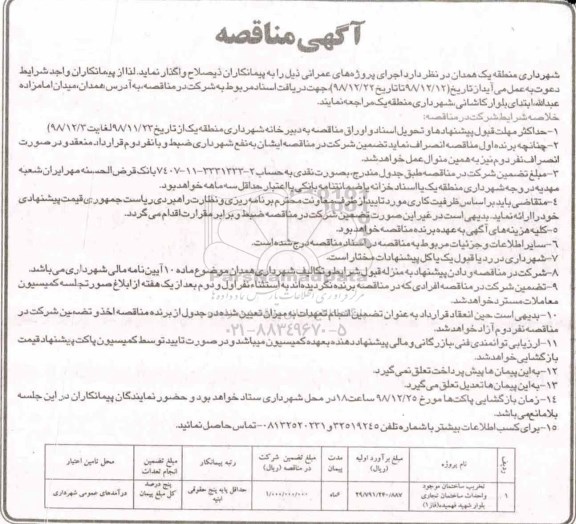 آگهی مناقصه
شهرداری منطقه یک همدان در نظر دارد اجرای پروژه‌های عمرانی ذیل را به پیمانکاران ذیصلاح واگذار نماید. لذا از پیمانکاران واجد شرایط
دعوت به عمل می آید از تاریخ (۹۸/۱۲/۱۲ تا تاریخ ۹۸/۱۲/۲۲) جهت دریافت اسناد مربوط به شرکت در مناقصه، به آدرس: همدان، میدان امامزاده
عبدالله، ابتدای بلوار کاشانی، شهرداری منطقه یک مراجعه نمایند.
خلاصه شرایط شرکت در مناقصه:
۱- حداکثر مهلت قبول پیشنهادها و تحویل اسناد و اوراق مناقصه به دبیرخانه شهرداری منطقه یک از تاریخ ۹۸/۱۱/۲۳ لغایت ۹۸/۱۲/۳)
۲- چنانچه برنده اول مناقصه انصراف نماید تضمین شرکت در مناقصه ایشان به نفع شهرداری ضبط و با نفر دوم قرارداد منعقد و در صورت
انصراف نفر دوم نیز به همین منوال عمل خواهد شد.
۳- مبلغ تضمین شرکت در مناقصه طبق جدول مندرج، بصورت نقدی به حساب ۲-۳۳۳۱۳۳۳-۱۱-۷۴۰۷ بانک قرض الحسنه مهر ایران شعبه
مهدیه در وجه شهرداری منطقه یک یا اسناد خزانه یا ضمانتنامه بانکی با اعتبار حداقل سه ماهه خواهد بود.
۴- متقاضی باید بر اساس ظرفیت کاری مورد تایید از طرف معاونت محترم برنامه ریزی و نظارت راهبردی ریاست جمهوری قیمت پیشنهادی
خود را ارائه نماید. بدیهی است در غیر این صورت تضمین شرکت در مناقصه ضبط و برابر مقررات اقدام می گردد.
۵- کلیه هزینه های آگهی به عهده برنده مناقصه خواهد بود.
۶- سایر اطلاعات و جزئیات مربوط به مناقصه در اسناد مناقصه درج شده است.
۷- شهرداری در رد یا قبول یک یا کل پیشنهادات مختار است.
۸- شرکت در مناقصه و دادن پیشنهاد به منزله قبول شرایط و تکالیف شهرداری همدان موضوع ماده ۱۰ آیین نامه مالی شهرداری می باشد.
۹- تضمین شرکت در مناقصه افرادی که در مناقصه برنده نگردیده‌اند به استثناء نفر اول و دوم بعد از یک هفته از ابلاغ صورتجلسه کمیسیون
معاملات مسترد خواهد شد.
۱۰- بدیهی است حین انعقاد قرارداد به عنوان تضمین انجام تعهدات به میزان تعیین شده در جدول از برنده مناقصه اخذ و تضمین شرکت در
مناقصه نفر دوم آزاد خواهد شد.
۱۱- ارزیابی توانمندی فنی، بازرگانی و مالی پیشنهاد دهنده بعهده کمیسیون میباشد و در صورت تایید توسط کمیسیون پاکت پیشنهاد قیمت
بازگشایی خواهد شد.
۱۲- به این پیمان ها پیش پرداخت تعلق نمی گیرد.
۱۳- به این پیمان ها تعدیل تعلق می گیرد.
۱۴- زمان بازگشایی پاکت ها مورخ ۹۸/۱۲/۲۵ ساعت ۱۸ در محل شهرداری ستاد خواهد بود و حضور نمایندگان پیمانکاران در این جلسه
بلامانع می باشد.
۱۵- برای کسب اطلاعات بیشتر با شماره تلفن ۳۲۵۱۹۲۴۵ و ۰۸۱۳۲۵۲۰۲۳۱ تماس حاصل نمائید.
۰۲۱-۸۸۳۴۹۶۷۰-۵
ردیف | نام پروژه | مبلغ برآورد اولیه (ریال) | مدت پیمان | مبلغ تضمین شرکت در مناقصه (ریال) | رتبه پیمانکار | مبلغ تضمین انجام تعهدات | محل تامین اعتبار
۱ | تخریب ساختمان موجود و احداث ساختمان تجاری بلوار شهید فهمیده (فاز۱) | ۲۹/۷۹۱/۲۴۰/۸۸۷ | ۶ماه | ۱/۰۰۰/۰۰۰/۰۰۰ | حداقل پایه پنج حقوقی ابنیه | پنج درصد کل مبلغ پیمان | درآمدهای عمومی شهرداری